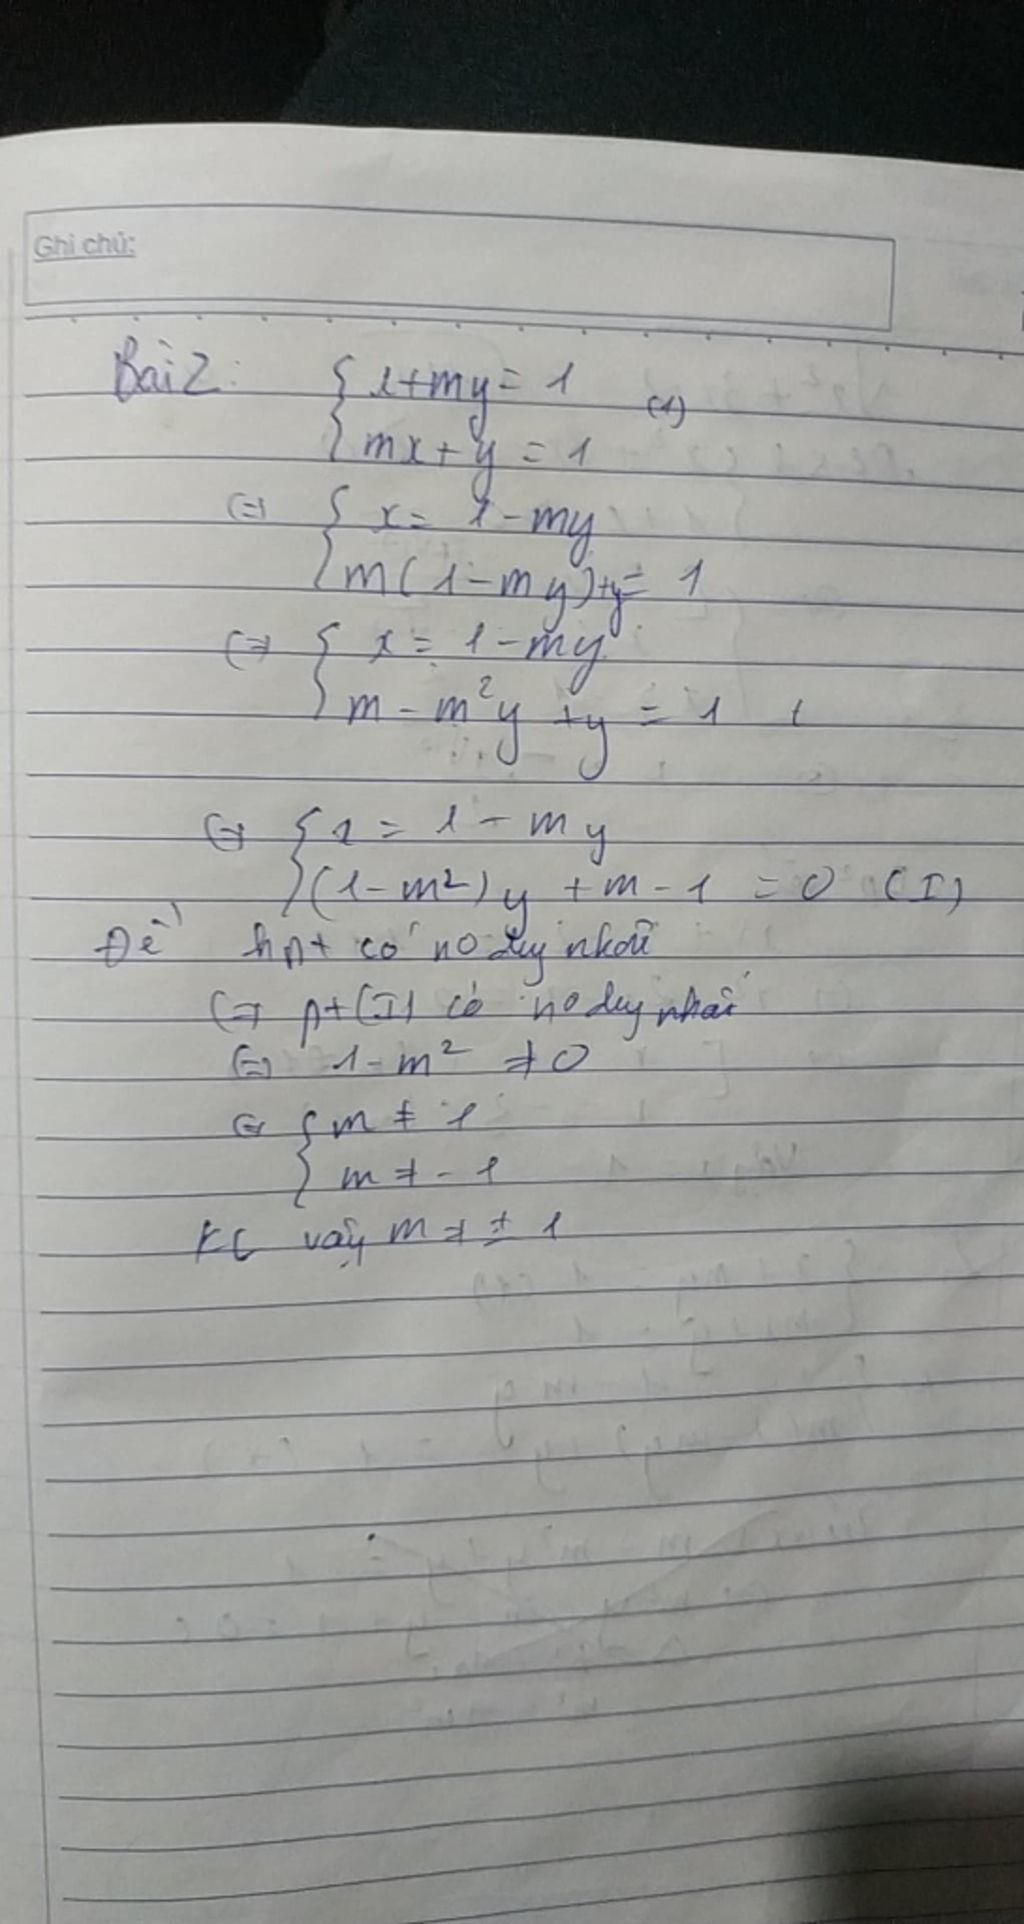 Ghi chú:
Bài 2: { x+my = 1
(1)
{ mx+y = 1
(=) { x = 1-my
{ m(1-my)+y = 1
(=) { x = 1-my
{ m - m²y + y = 1
(=) { x = 1-my
{ (1-m²)y + m - 1 = 0 (I)
Để hpt có no duy nhất
(=) pt (I) có no duy nhất
(=) 1-m² ≠ 0
(=) { m ≠ 1
{ m ≠ -1
KL vậy m ≠ ± 1